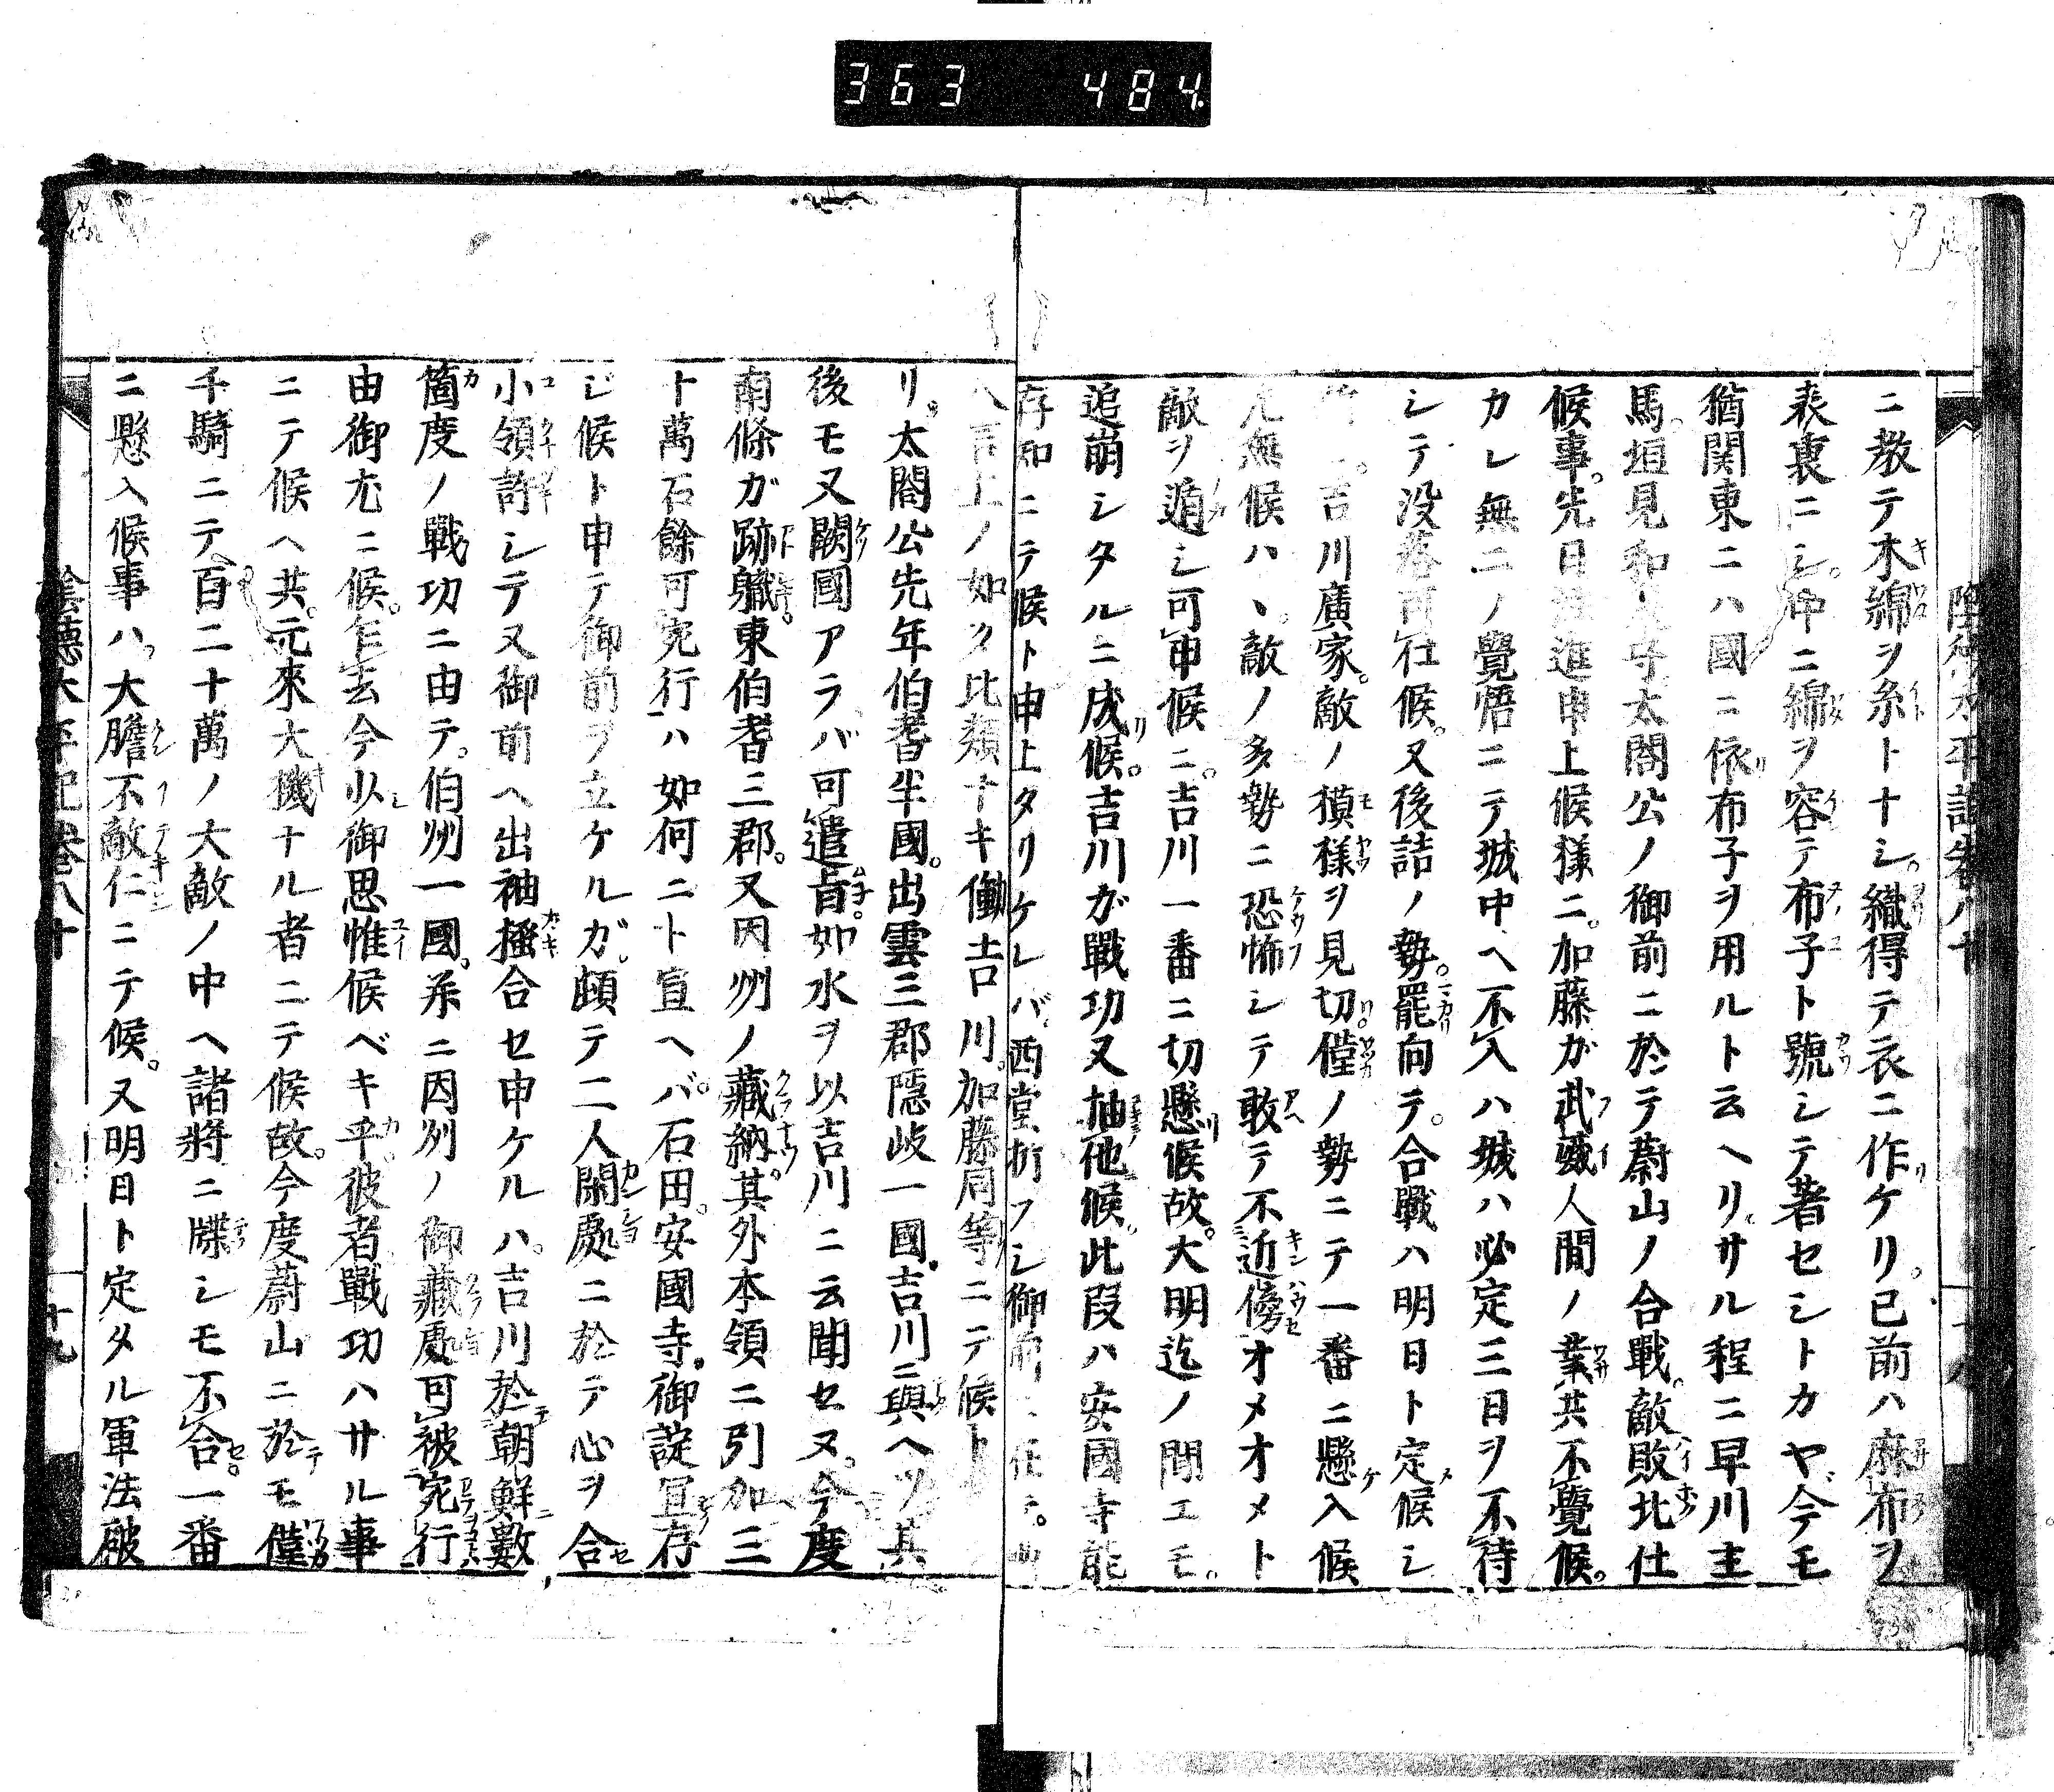 363 484
陰徳太平記巻八十
ニ教テ木綿ヲ糸トナシ。織得テ衣ニ作ケリ。已前ハ麻布ヲ
表裏ニシ。中ニ綿ヲ容テ布子ト號シテ著セシトカヤ。今モ
猶関東ニハ國ニ依布子ヲ用ルト云ヘリ。サル程ニ早川主
馬。垣見和泉守太閤公ノ御前ニ於テ蔚山ノ合戰。敵敗北仕
候事。先日注進申上候様ニ。加藤ガ武威人間ノ業共不覺候。
カレ無二ノ覺悟ニテ城中ヘ不入ハ城ハ必定三日ヲ不待
シテ没落可仕候。又後詰ノ勢。罷向テ。合戰ハ明日ト定候シ
。吉川廣家。敵ノ模様ヲ見切僅ノ勢ニテ一番ニ懸入候
無候ハヽ。敵ノ多勢ニ恐怖シテ敢テ不近傍オメオメト
敵ヲ遁シ可申候ニ。吉川一番ニ切懸候故。大明迄ノ聞エモ。
追崩シタルニ成候。吉川ガ戰功又抽他候。此段ハ安國寺能
存知ニテ候ト申上タリケレバ。西堂折フシ御前ニ在テ。
八言上ノ如ク比類ナキ働吉川。加藤同等ニテ候ト
リ。太閤公先年伯耆半國。出雲三郡隠岐一國。吉川ニ與ヘツ其
後モ又闕國アラバ可遣旨。如水ヲ以吉川ニ云聞セヌ。今度
南條ガ跡職。東伯耆三郡。又因州ノ藏納。其外本領ニ引加三
ト萬石餘可宛行ハ如何ニト宣ヘバ。石田。安國寺。御諚宜存
ジ候ト申テ御前ヲ立ケルガ。頓テ二人閑處ニ於テ心ヲ合
小領許シテ又御前ヘ出袖搔合セ申ケルハ。吉川於朝鮮數
箇度ノ戰功ニ由テ。伯州一國。并ニ因列ノ御藏處可被宛行
由御尤ニ候。乍去今少御思惟候ベキ乎。彼者戰功ハサル事
ニテ候ヘ共。元來大機ナル者ニテ候故。今度蔚山ニ於モ僅
千騎ニテ百二十萬ノ大敵ノ中ヘ諸將ニ牒シモ不合。一番
ニ懸入候事ハ。大膽不敵仁ニテ候。又明日ト定タル軍法破
陰徳太平記巻八十
十九